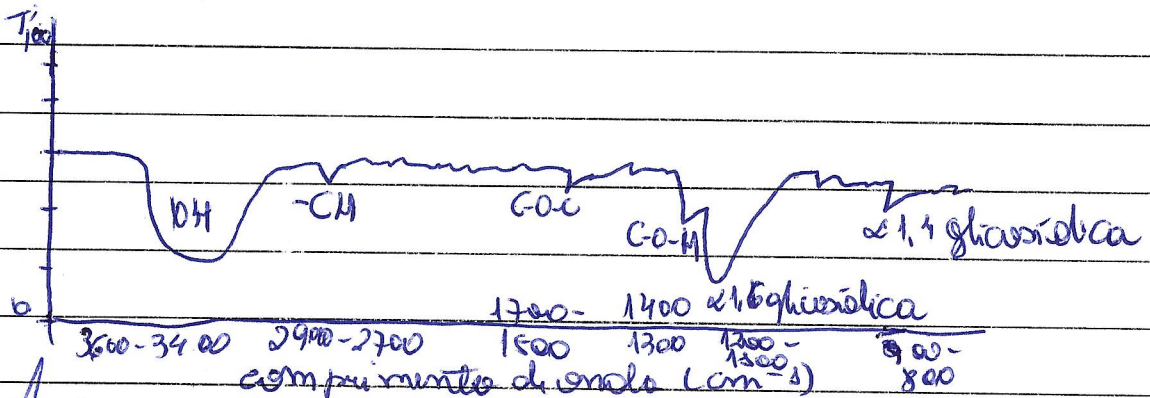 T, 100
OH
-CH
C-O-C
C-O-H
α1,4 glicosídica
α1,6 glicosídica
0
3600-3400
2900-2700
1700-
1500
1400
1300
800
comprimento de onda (cm-1)